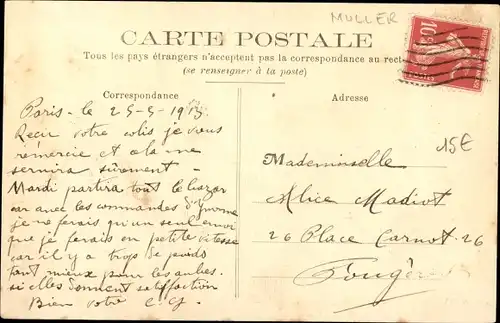 MULLER
CARTE POSTALE
Tous les pays étrangers n'acceptent pas la correspondance au rect
(se renseigner à la poste)
Correspondance
Paris - le 25-5-1913
Reçu votre colis je vous
remercie et cela me
servira sûrement -
Mardi partira tout le
car avec les commandes d'Yvonne
je ne ferais qu'un seul envoi
que je ferais en petite vitesse
car il y a trop de poids
tant mieux pour les aubes.
si elles donnent satisfaction
Bien votre
Adresse
15€
Mademoiselle
Alice Madiot
26 Place Carnot - 26
Fougères